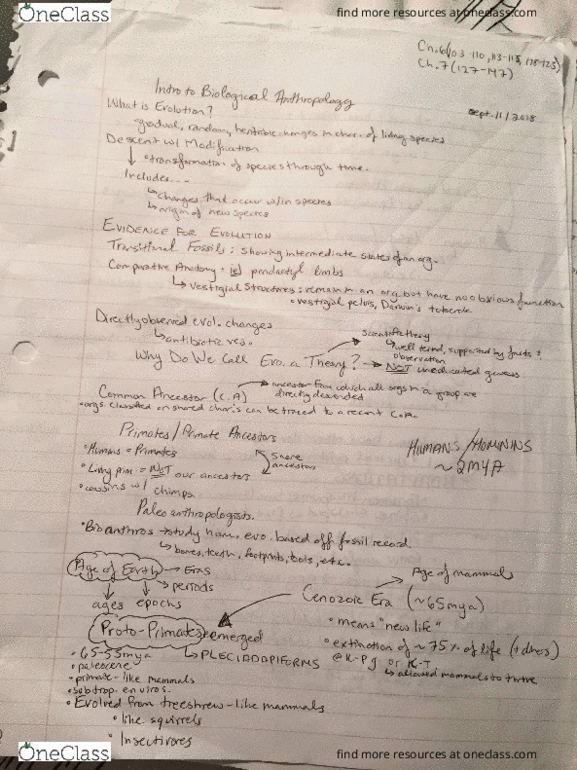 OneClass
find more resources at oneclass.com
Ch.6(103-110, 113-115, 118-125)
Ch.7(127-147)
Intro to Biological Anthropology
Sept. 11/2018
What is Evolution?
gradual, random, heritable changes in char. of living species
Descent w/ Modification
transformation of species through time.
Includes...
changes that occur w/in species
origin of new species
EVIDENCE FOR EVOLUTION
Transitional Fossils: showing intermediate states of an org.
Comparative Anatomy: pendactyl limbs
Vestigial Structures: remain in an org. but have no obvious function
vestigial pelvis, Darwin's tubercle
Directly observed evol. changes
antibiotic res.
Scientific theory
well tested, supported by facts +
observation
Why Do We Call Evo. a Theory? → NOT uneducated guess
Common Ancestor (C.A) → ancestor from which all orgs in a group are
directly descended
orgs classified on shared char.s can be traced to a recent C.A.
Primates/Primate Ancestors
Humans = Primates
Living prim. = NOT our ancestors
cousins w/ chimps
Share
ancestors
HUMANS/HOMININS
~2MYA
Paleoanthropologists.
Bioanthros → study hum. evo. based off fossil record
bones, teeth, footprints, tools, etc.
Age of Earth → Eras
periods
ages epochs
Age of mammals
Cenozoic Era (~65mya)
means "new life"
extinction of ~75% of life (+dinos)
@K-Pg or K-T
allowed mammals to thrive
Proto-Primates emerged
65-55mya → PLECIADAPIFORMS
paleocene
primate-like mammals
subtrop. enviros.
Evolved from treeshrew-like mammals
like squirrels
Insectivores
OneClass
find more resources at oneclass.com